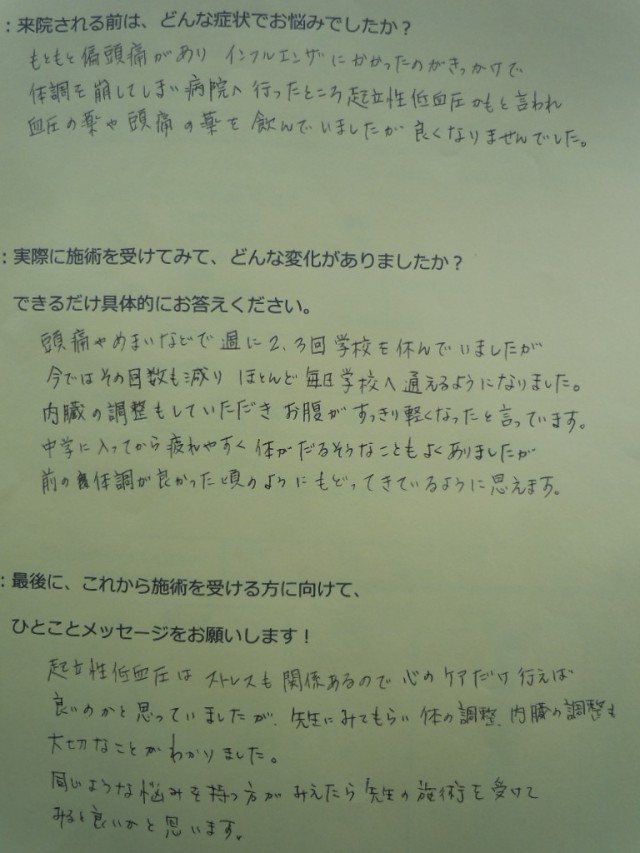 ：来院される前は、どんな症状でお悩みでしたか？
もともと偏頭痛があり インフルエンザにかかったのがきっかけで
体調を崩してしまい病院へ行ったところ起立性低血圧かもと言われ
血圧の薬や頭痛の薬を飲んでいましたが良くなりませんでした。
：実際に施術を受けてみて、どんな変化がありましたか？
できるだけ具体的にお答えください。
頭痛やめまいなどで週に2、3回学校を休んでいましたが
今ではその回数も減り ほとんど毎日学校へ通えるようになりました。
内臓の調整もしていただき お腹がすっきり軽くなったと言っています。
中学に入ってから疲れやすく体がだるそうなこともよくありましたが
前の体調が良かった頃のようにもどってきているように思えます。
：最後に、これから施術を受ける方に向けて、
ひとことメッセージをお願いします！
起立性低血圧はストレスも関係あるので心のケアだけ行えば
良いのかと思っていましたが、先生にみてもらい体の調整、内臓の調整も
大切なことがわかりました。
同じような悩みを持つ方がみえたら先生の施術を受けて
みると良いかと思います。